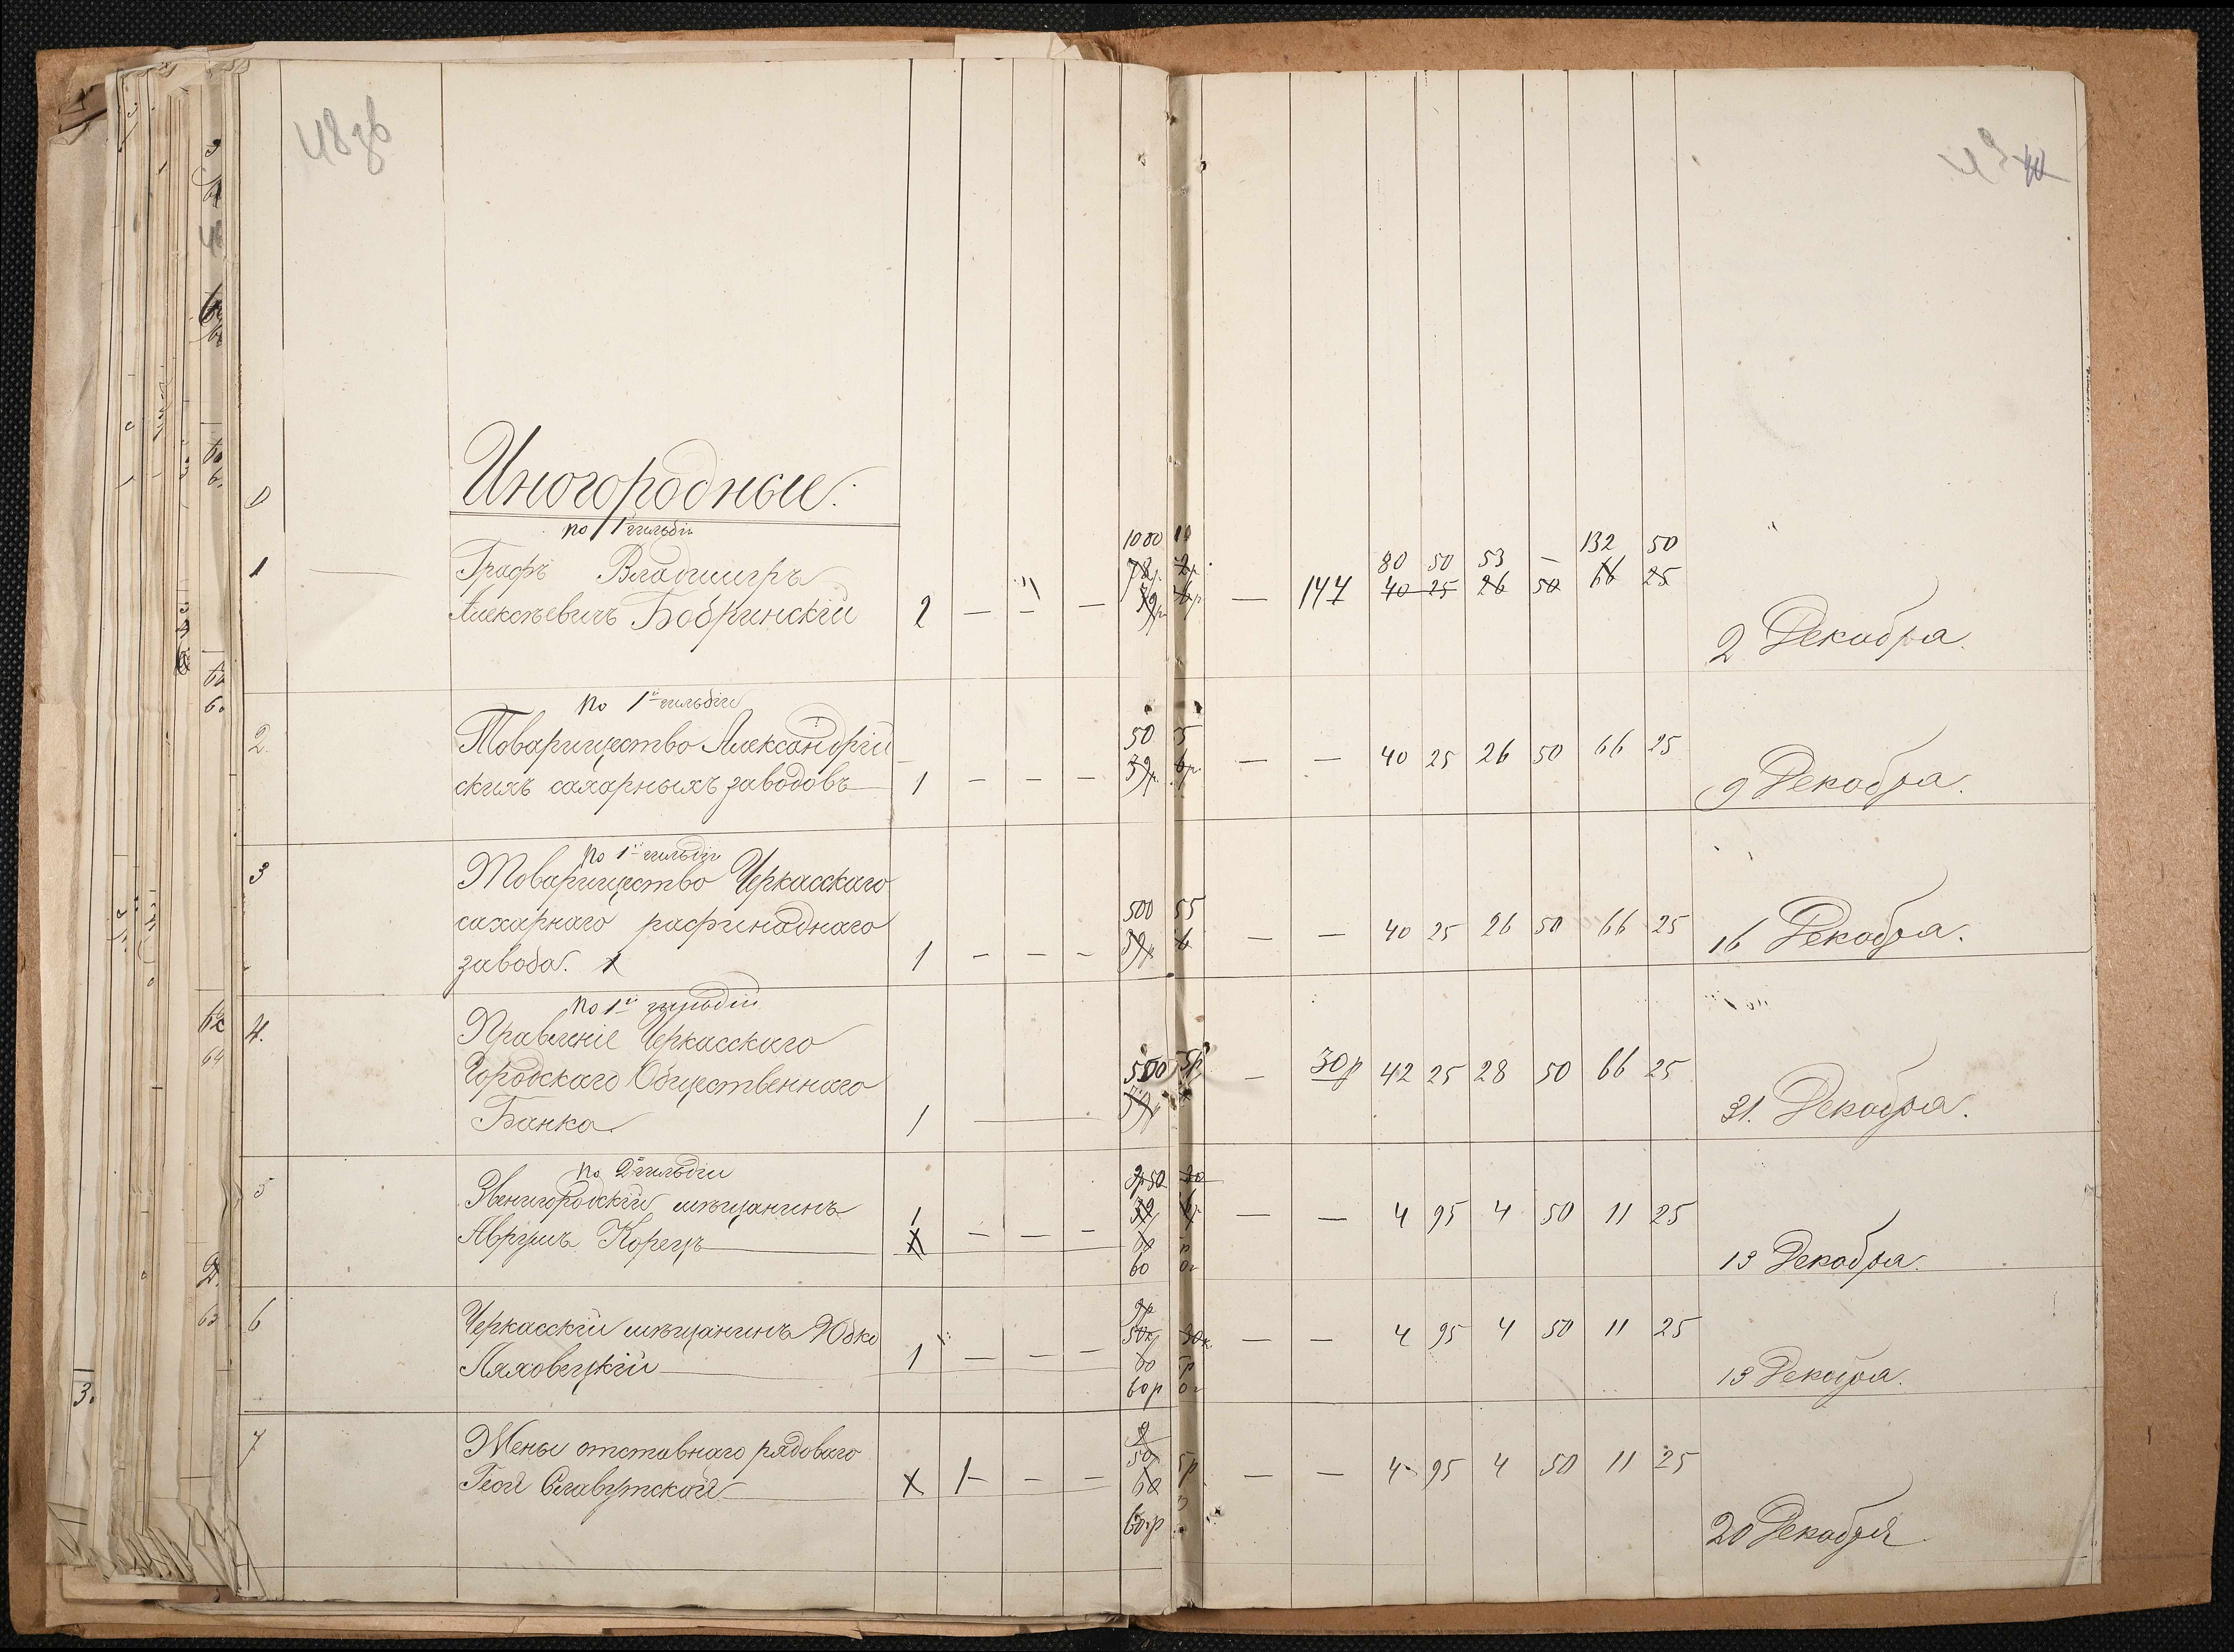 48 зв
Иногородные.
1
по 1й гильдіи
Графъ Владиміръ
Алексѣевичъ Бобринскій 2 — — — — 147
1000 10
80 50 53 — 132 50
40 25 26 50 66 25
2 Декабра.
2.
по 1й гильдіи
Товарищество Александрій
скихъ сахарныхъ заводовъ 1 — — —
50 5
39р. 6р. — — 40 25 26 50 66 25
9 Декабра.
3
по 1й гильдіи
Товарищество Черкасскаго
сахарнаго рафинаднаго
завода. 1 — — —
500 55
39р — — 40 25 26 50 66 25
16 Декабра.
4.
по 1й гильдіи
Правленіе Черкасскаго
Городскаго Общественнаго
Банка 1
500 5р — 30р 42 25 28 50 66 25
31. Декабра.
5
по 2й гильдіи
Звенигородскій мѣщанинъ 1
Аврумъ Корецъ — —
60
— — 4 95 4 50 11 25
13 Декабра.
6
Черкасскій мѣщанинъ Юдко
Ляховецкій 1 — — —
60р
— — 4 95 4 50 11 25
13 Декабра.
7
Жены отставнаго рядоваго
Геси Славутской 1 — — —
60р
— — 4 95 4 50 11 25
20 Декабря